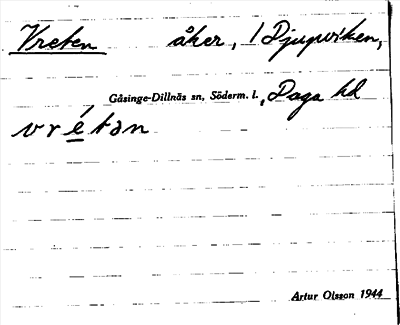 Vreten åker, 1 Djupviken,
Gåsinge-Dillnäs sn, Söderm. l., Daga hd
vrétən
Artur Olsson 1944